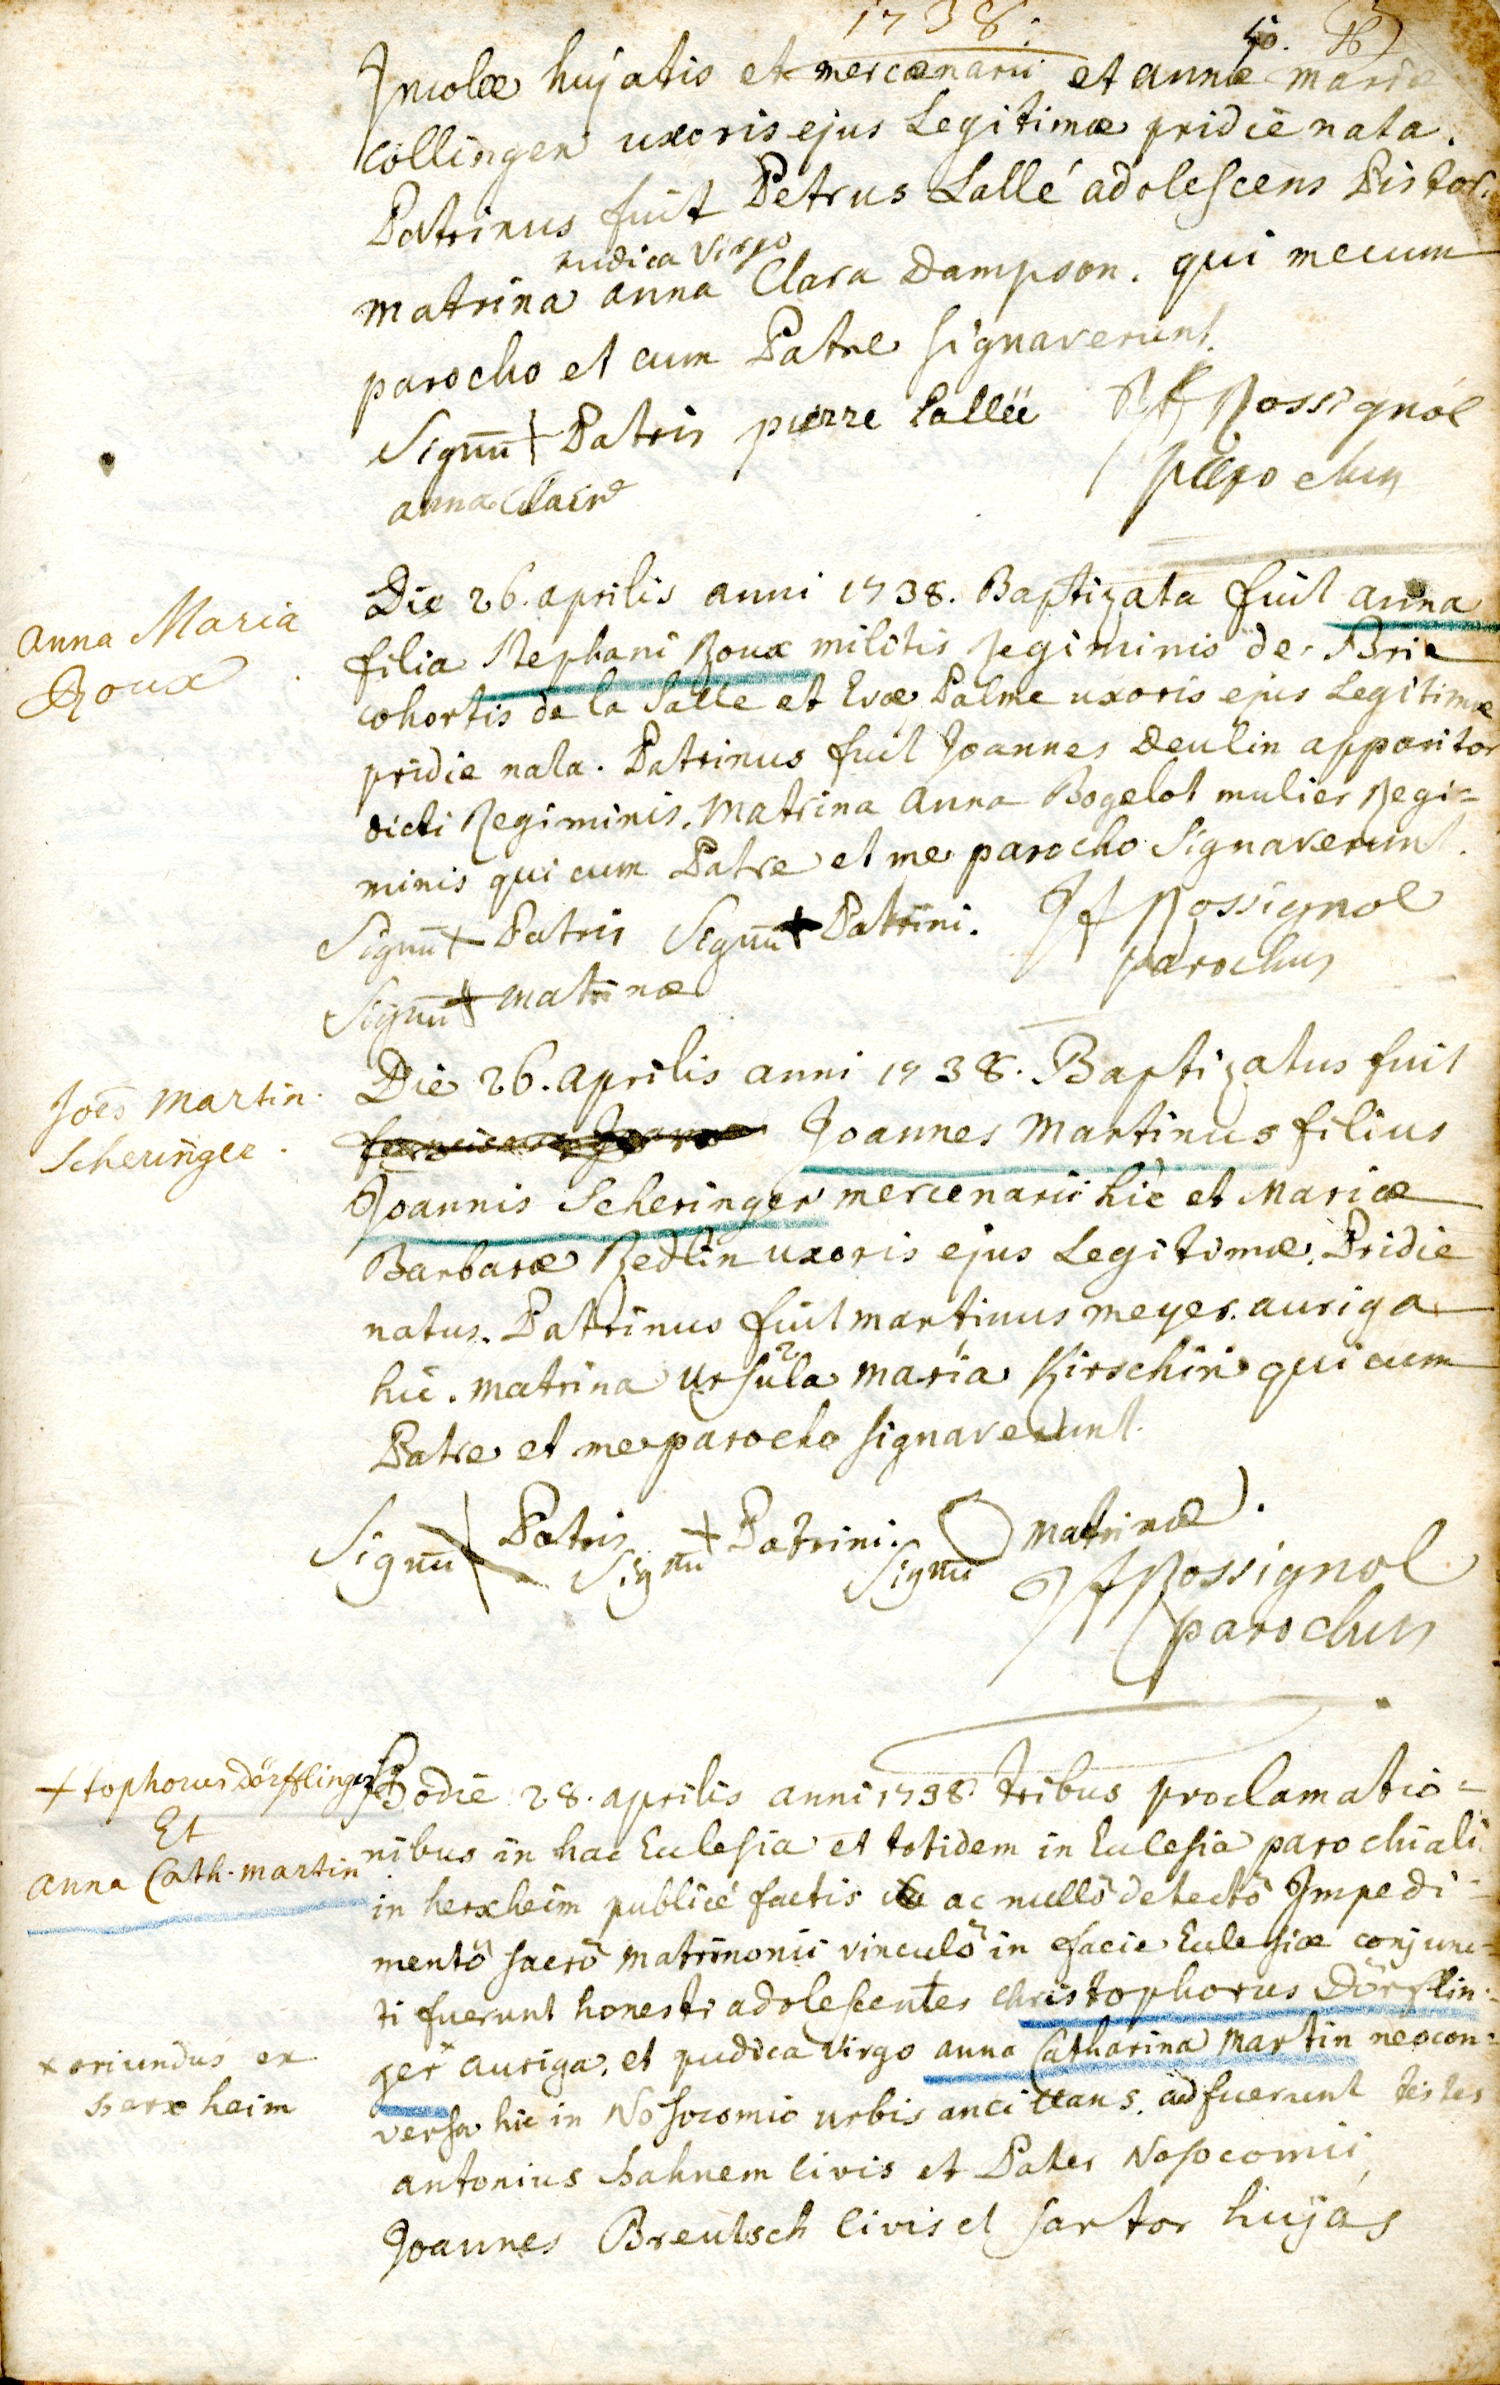 1738.
Incolæ hujatis et mercænarii et annæ mariæ
Collinger uxoris ejus Legitimæ pridie nata.
Patrinus fuit Petrus Lallé adolescens Pistor.
pudica virgo
matrina anna Clara Dampson. qui mecum
parocho et cum Patre signaverunt.
Signū + Patris pierre Lalleé JF Rossignol
anna Clair parochus
Anna Maria
Roux
Die 26. aprilis anni 1738. Baptizata fuit anna
filia Stephani Roux militis Regiminis de Brie
cohortis de la Salle et Evæ Palme uxoris ejus Legitimæ
pridie nata. Patrinus fuit Joannes Deulin apparitor
dicti Regiminis. Matrina anna Bogelot mulier Regi=
minis qui cum Patre et me parocho signaverunt.
Signū + Patris Signū + Patrini. JF Rossignol
Signū + matrinæ parochus
Joēs Martin.
Scheringer.
Die 26. aprilis anni 1738. Baptizatus fuit
Joannes Martinus filius
Joannis Scheringer mercenarii hic et Mariæ
Barbaræ Redlin uxoris ejus Legitimæ. Pridie
natus. Patrinus fuit martinus meyer. auriga
hic. matrina ursula maria Kirschin qui cum
Patre et me parocho signaverunt.
Signū + Patris Signū + Patrini. Signū O matrinæ.
JF Rossignol
parochus
+tophorus Dörfflinger
Et
anna Cath. martin
Hodie 28. aprilis anni 1738. tribus proclamatio=
nibus in hac Eclesia et totidem in Eclesia parochiali
in herxheim publicé factis ac nullô detectô Impedi=
mentô sacrô matrimonii vinculô in facie Eclesiæ conjunc=
ti fuerunt honesti adolescentes christophorus Dörfflin=
ger auriga, et pudica virgo anna Catharina Martin neocon=
x oriundus ex
herxheim
versa hic in Nosocomio urbis ancillans. adfuerunt testes
antonius hahnem civis et Pater Nosocomii
Joannes Breutsch civis et sartor hujás